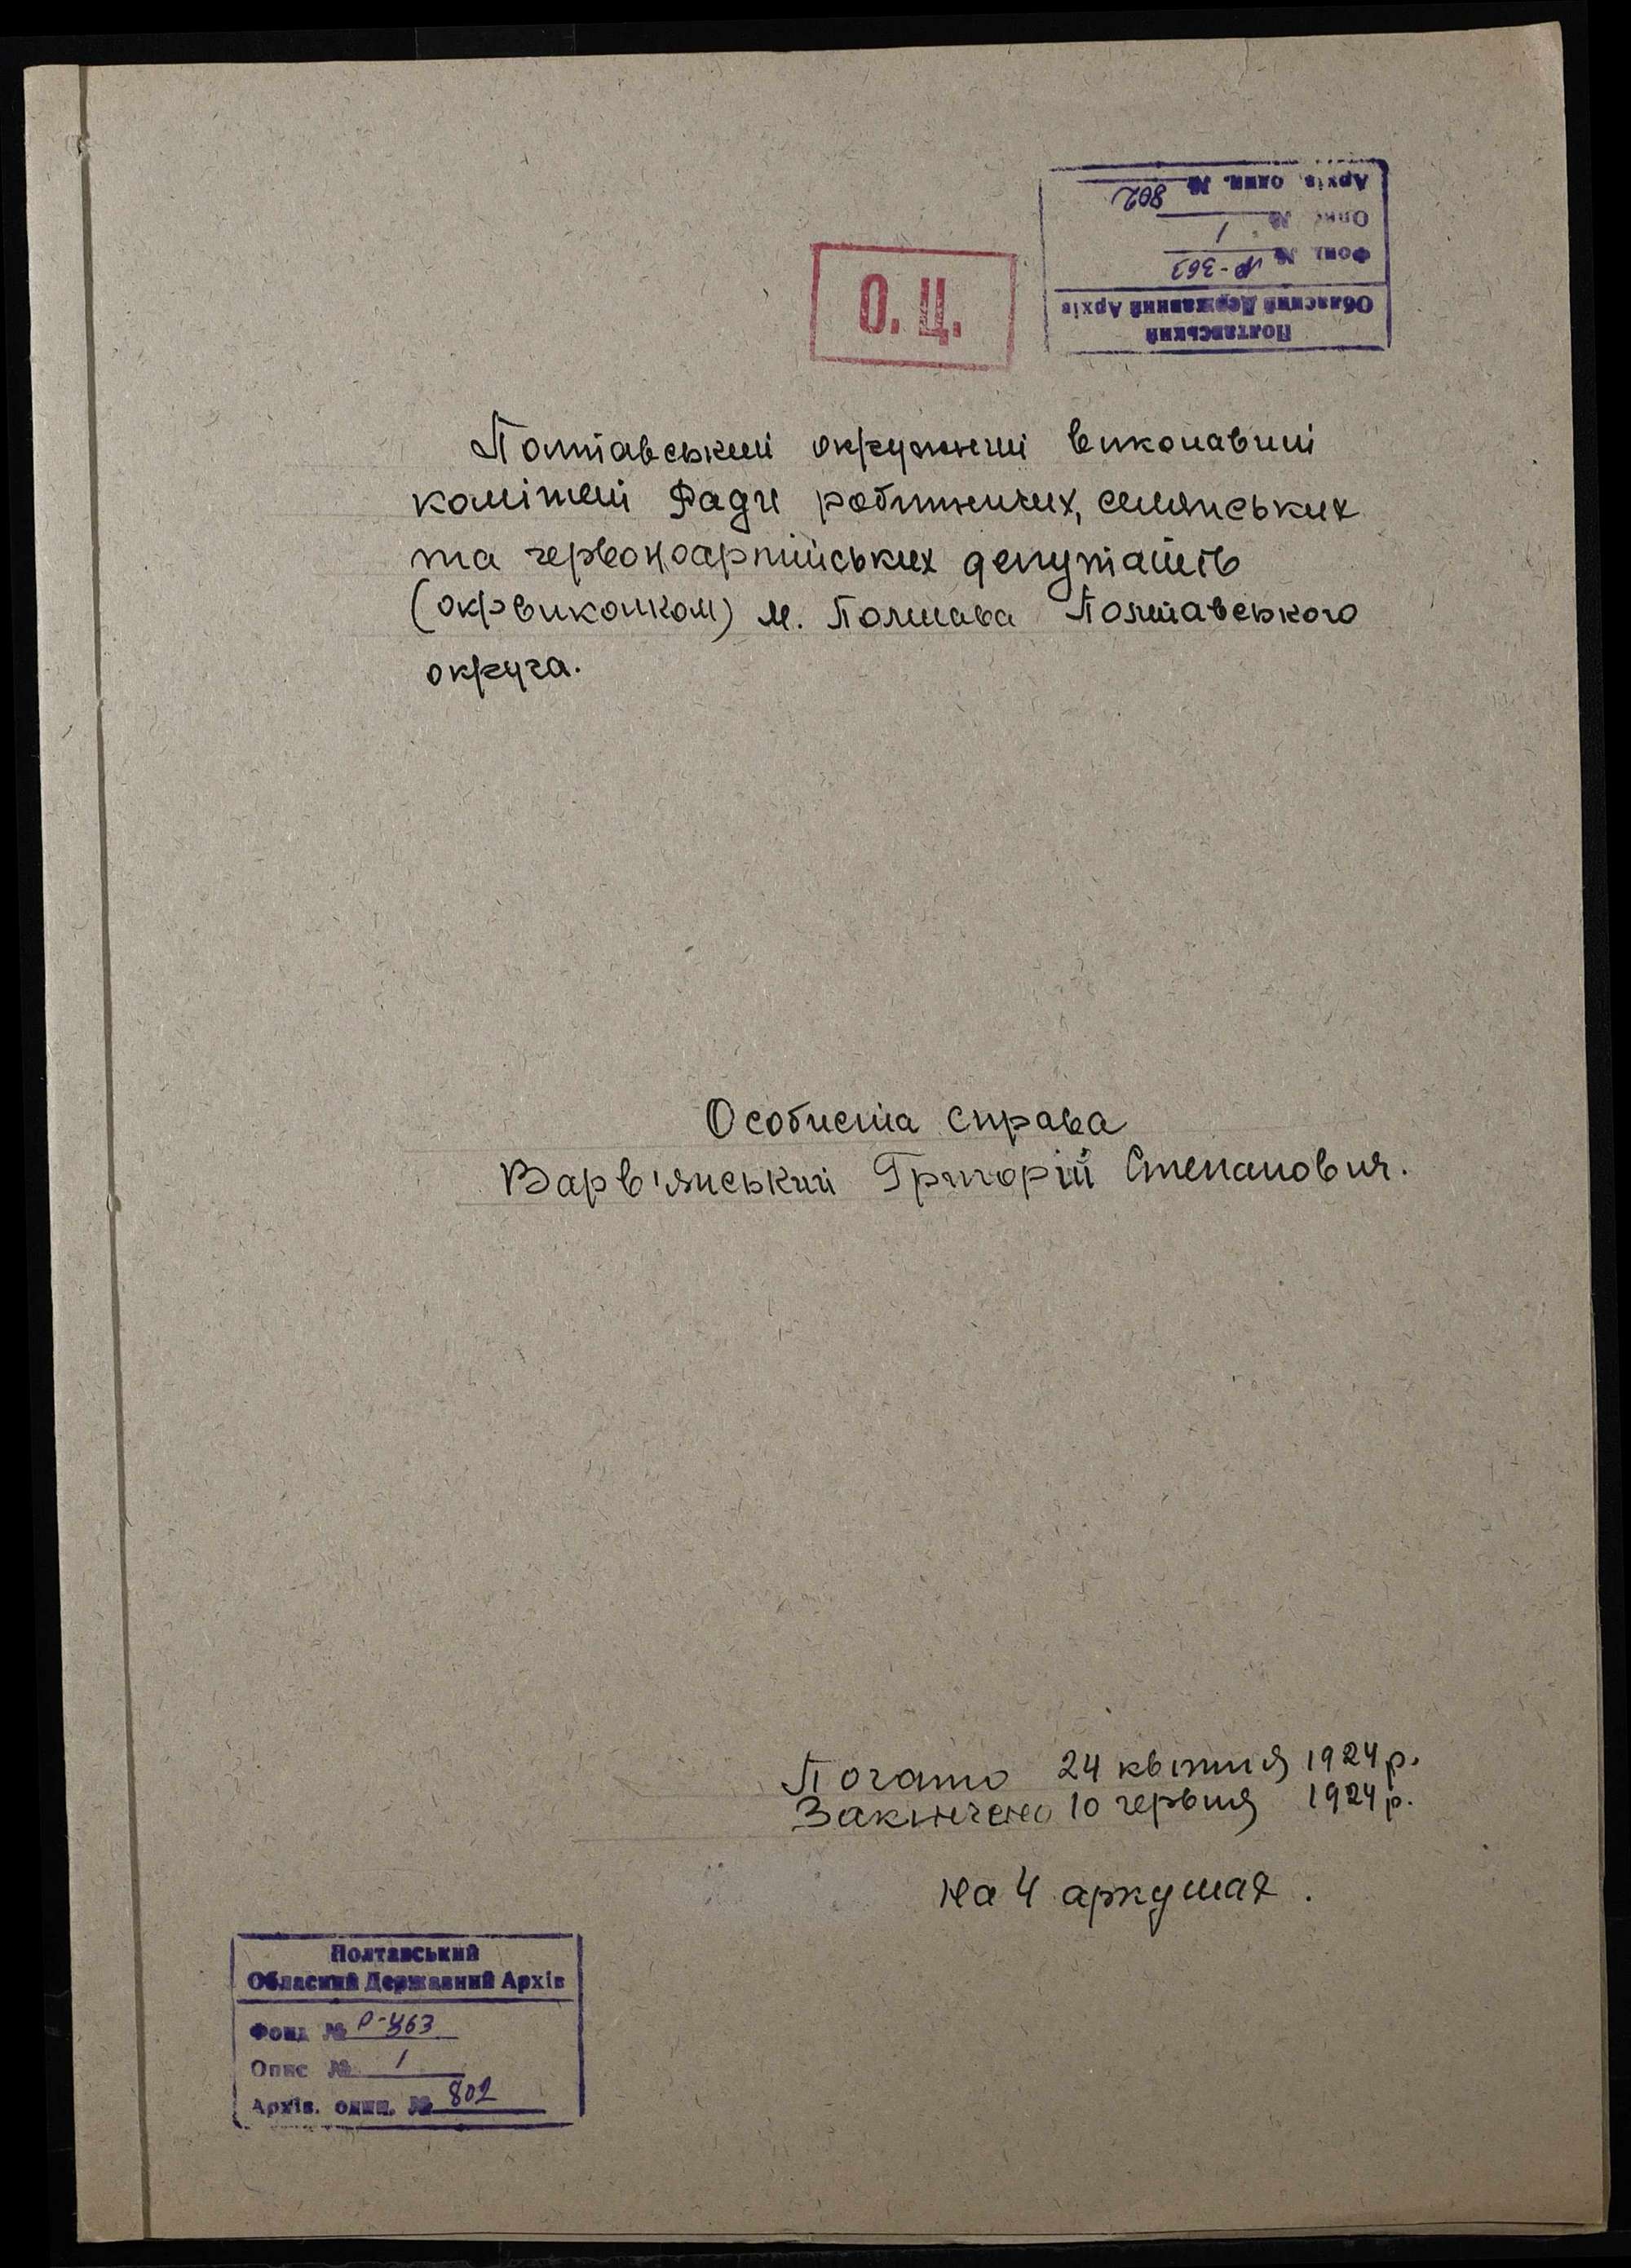 Полтавський
Обласний Державний Архів
Фонд № Р-363
Опис № 1
Архів. один. № 802
О. Ц.
Полтавський окружний виконавчий
комітет Ради робітничих, селянських
та червоноармійських депутатів
(окрвиконком) м. Полтава Полтавського
округа.
Особиста справа
Варв'янський Григорій Степанович.
Почато 24 квітня 1924 р.
Закінчено 10 червня 1924 р.
на 4 аркушах.
Полтавський
Обласний Державний Архів
Фонд № Р-363
Опис № 1
Архів. один. № 802